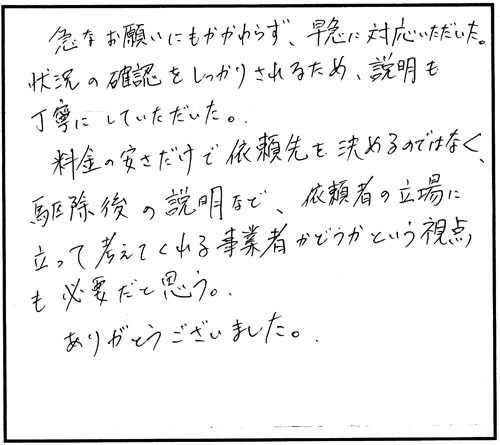 急なお願いにもかかわらず、早急に対応いただいた。
状況の確認をしっかりされるため、説明も
丁寧にしていただいた。
料金の安さだけで依頼先を決めるのではなく、
駆除後の説明など、依頼者の立場に
立って考えてくれる事業者かどうかという視点
も必要だと思う。
ありがとうございました。